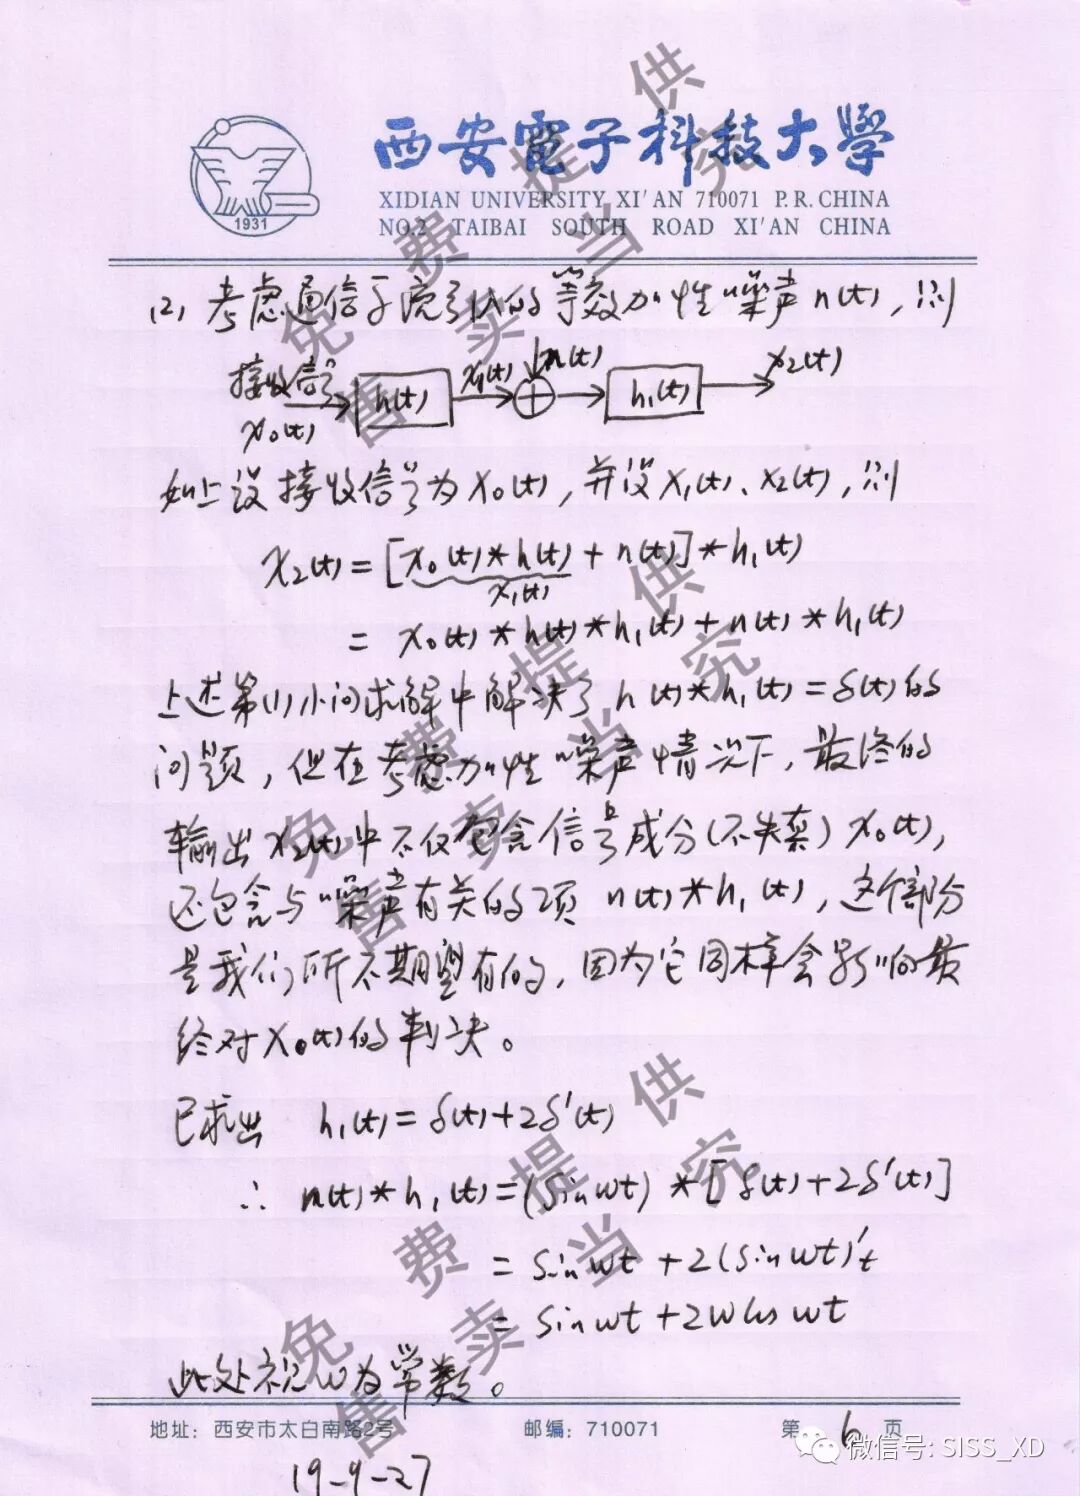 西安電子科技大學
XIDIAN UNIVERSITY XI'AN 710071 P.R. CHINA
NO.2 TAIBAI SOUTH ROAD XI'AN CHINA
1931
(2) 考虑通信系统引入的等效加性噪声 n(t), 则
接收信号 x₀(t) h(t) x₁(t) n(t) h₁(t) x₂(t)
如上设接收信号为 x₀(t), 并设 x₁(t)、x₂(t), 则
x₂(t) = [x₀(t)*h(t) + n(t)] * h₁(t)
x₁(t)
= x₀(t) * h(t) * h₁(t) + n(t) * h₁(t)
上述第(1)小问求解中解决了 h(t)*h₁(t) = δ(t)的
问题, 但在考虑加性噪声情况下, 最终的
输出 x₂(t)中不仅包含信号成分(不失真) x₀(t),
还包含与噪声有关的项 n(t)*h₁(t), 这个部分
是我们所不期望有的, 因为它同样会影响最
终对 x₀(t)的判决。
已求出 h₁(t) = δ(t)+2δ'(t)
∴ n(t)*h₁(t) = (sinωt) * [δ(t)+2δ'(t)]
= sinωt + 2(sinωt)'t
= sinωt + 2ωcosωt
此处视ω为常数。
地址: 西安市太白南路2号 邮编: 710071 第 6 页
微信号: SISS_XD
19-9-27
免费提供
售卖当究
免费提供
售卖当究
免费提供
售卖当究